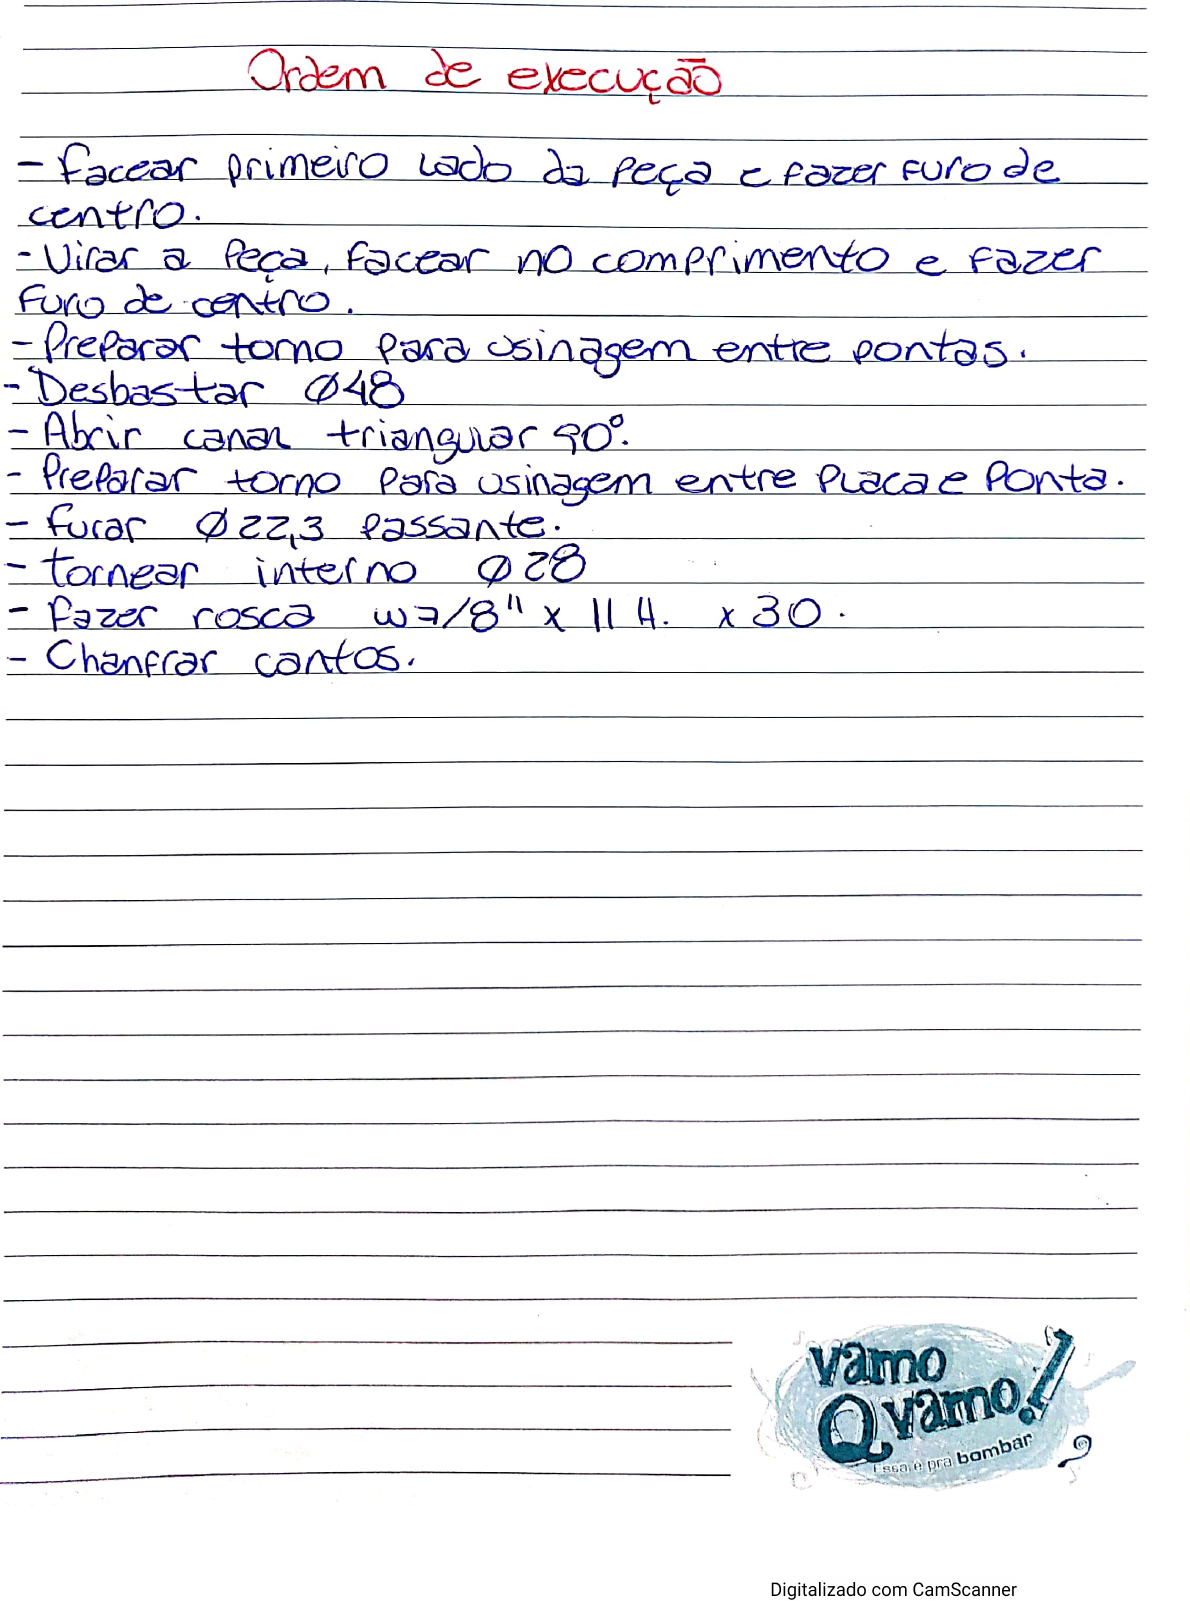 Ordem de execução
- Facear primeiro lado da peça e fazer furo de
centro.
- Virar a Peça, facear no comprimento e fazer
furo de centro.
- Preparar torno para usinagem entre pontas.
- Desbastar Ø48
- Abrir canal triangular 90º.
- Preparar torno para usinagem entre placa e ponta.
- furar Ø22,3 passante.
- tornear interno Ø28
- fazer rosca W7/8" x 11 H. x 30.
- Chanfrar cantos.
vamo
Q vamo!
Essa é pra bombar
Digitalizado com CamScanner